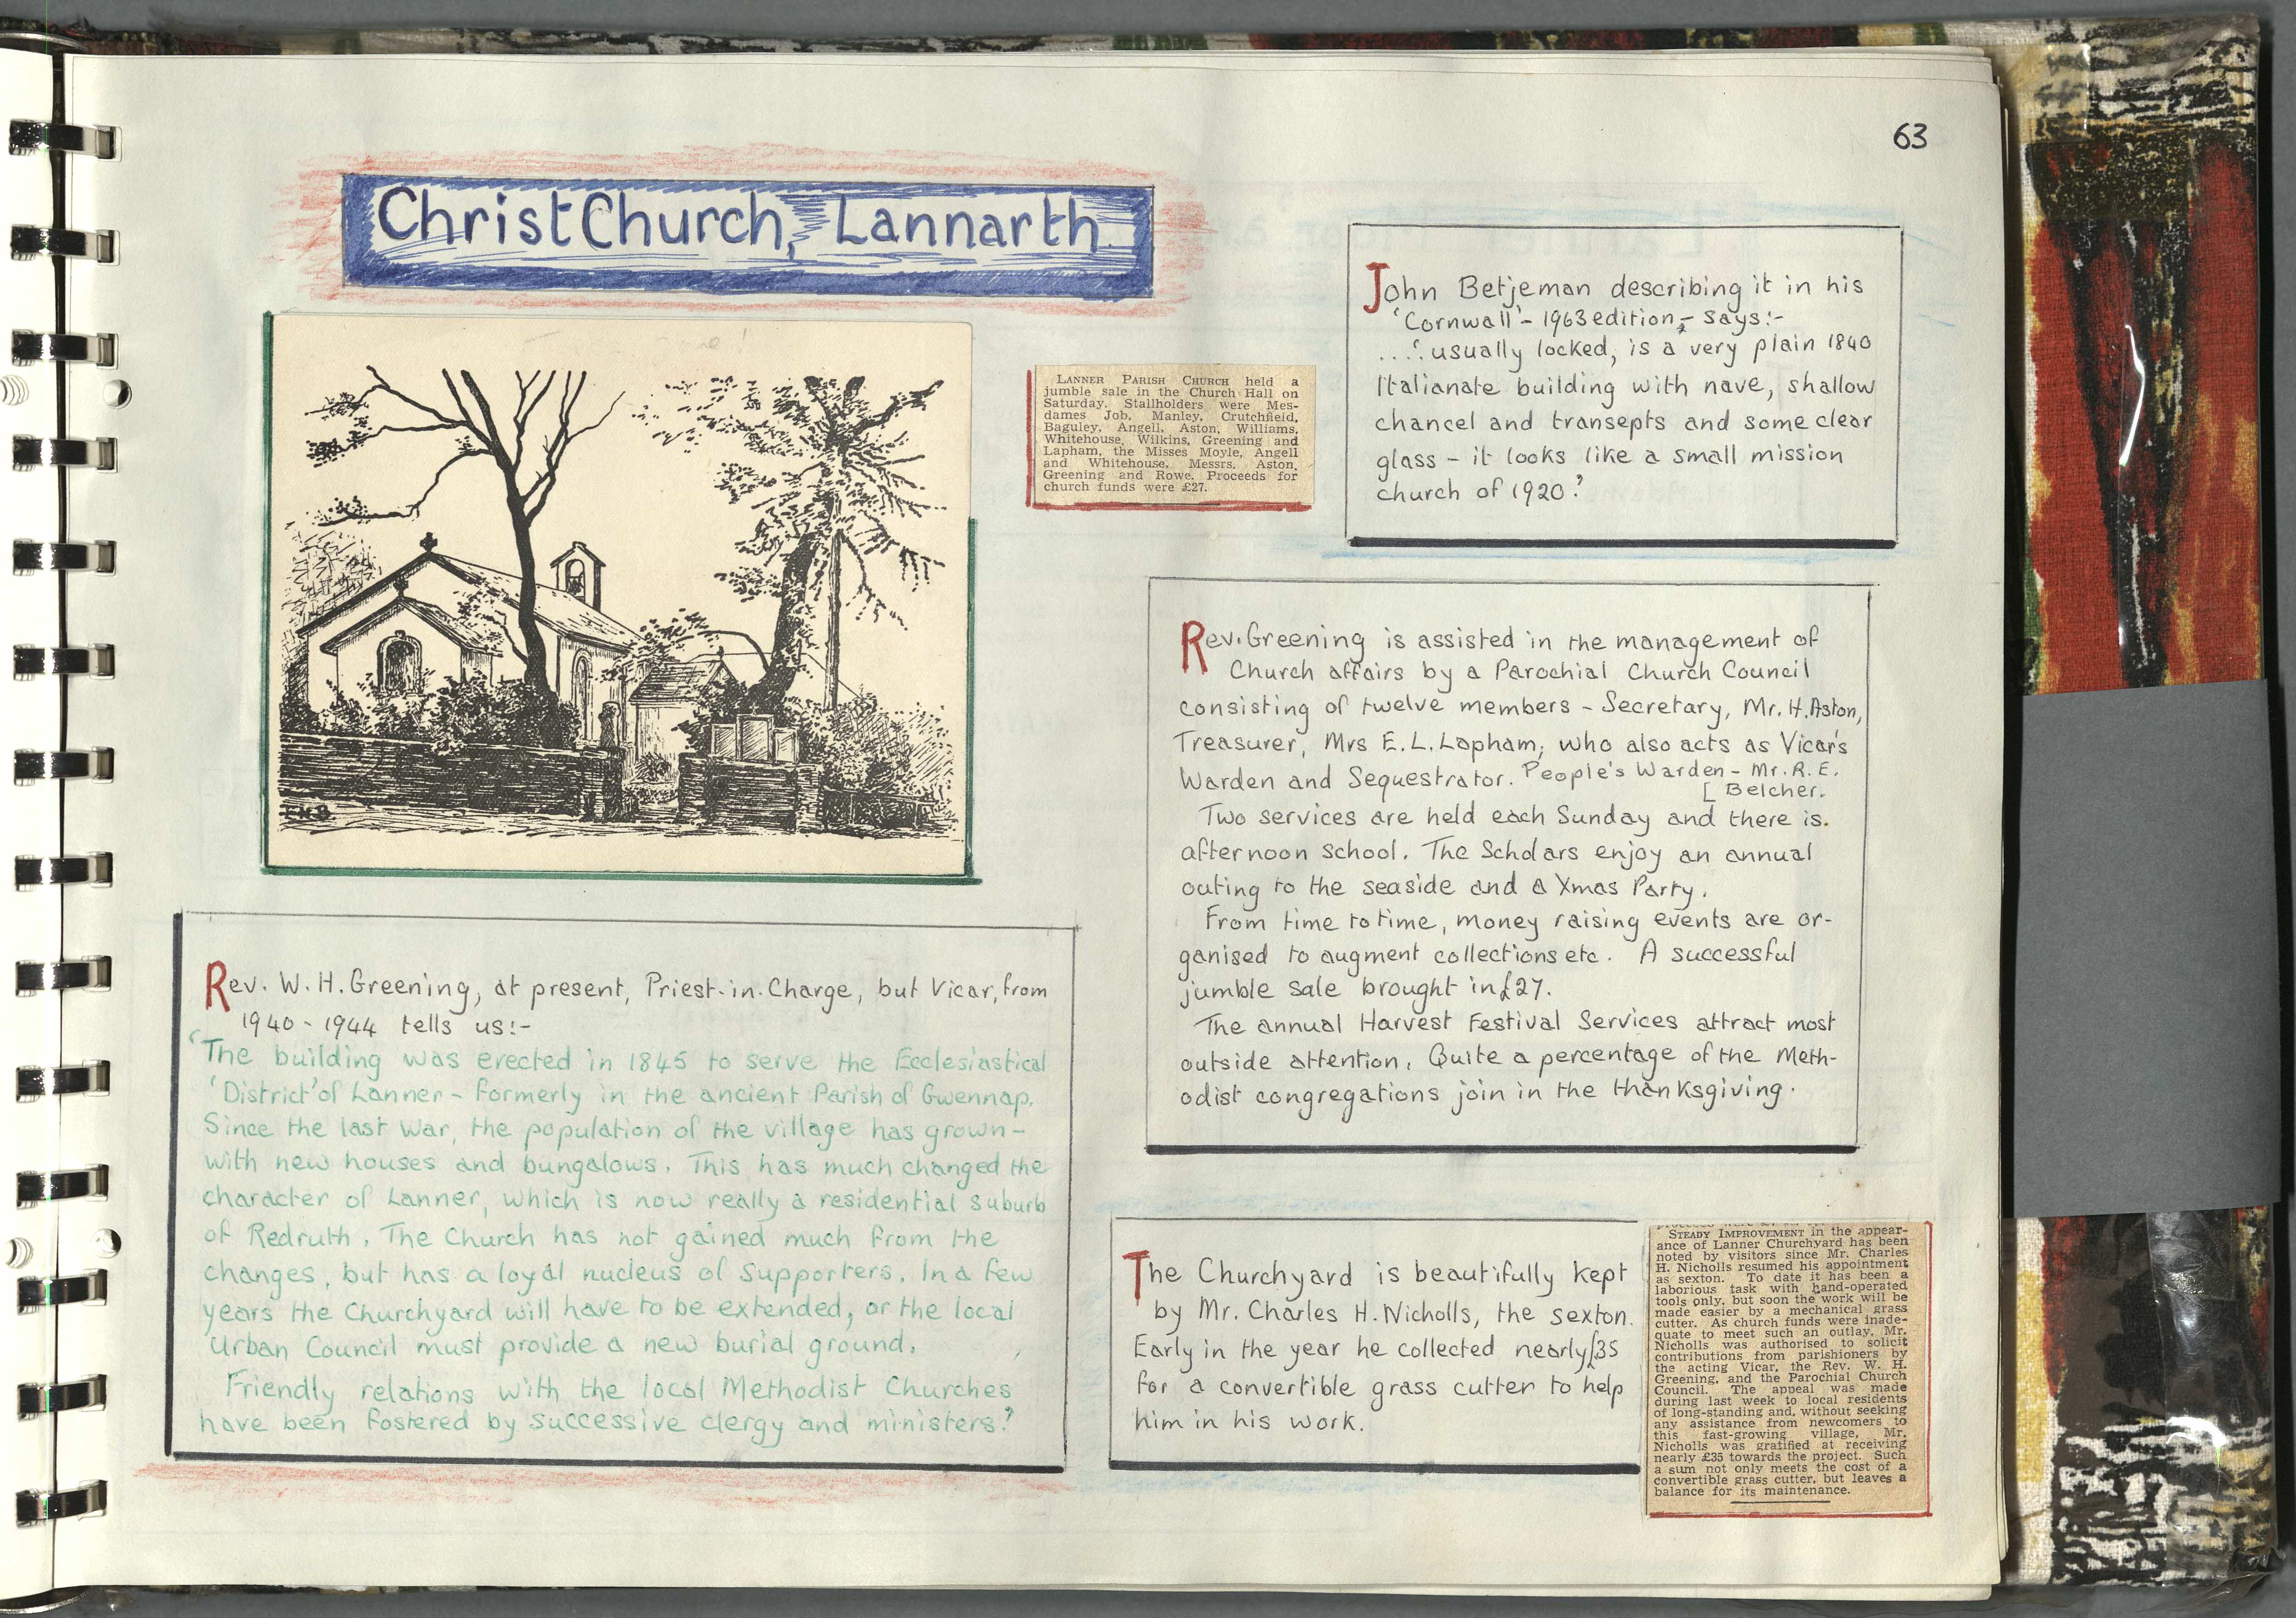 63
Christ Church, Lannarth
LANNER PARISH CHURCH held a
jumble sale in the Church Hall on
Saturday. Stallholders were Mes-
dames Job, Manley, Crutchfield,
Baguley, Angell, Aston, Williams,
Whitehouse, Wilkins, Greening and
Lapham, the Misses Moyle, Angell
and Whitehouse, Messrs. Aston,
Greening and Rowe. Proceeds for
church funds were £27.
John Betjeman describing it in his
'Cornwall' - 1963 edition - says:-
....'usually locked, is a very plain 1840
Italianate building with nave, shallow
chancel and transepts and some clear
glass - it looks like a small mission
church of 1920.'
Rev. W. H. Greening, at present, Priest-in-Charge, but Vicar, from
1940 - 1944 tells us:-
'The building was erected in 1845 to serve the Ecclesiastical
'District' of Lanner - formerly in the ancient Parish of Gwennap.
Since the last War, the population of the village has grown -
with new houses and bungalows. This has much changed the
character of Lanner, which is now really a residential suburb
of Redruth. The Church has not gained much from the
changes, but has a loyal nucleus of supporters. In a few
years the Churchyard will have to be extended, or the local
Urban Council must provide a new burial ground.
Friendly relations with the local Methodist Churches
have been fostered by successive clergy and ministers.'
Rev. Greening is assisted in the management of
Church affairs by a Parochial Church Council
consisting of twelve members - Secretary, Mr. H. Aston,
Treasurer, Mrs E. L. Lapham, who also acts as Vicar's
Warden and Sequestrator. People's Warden - Mr. R. E.
[ Belcher.
Two services are held each Sunday and there is
afternoon school. The Scholars enjoy an annual
outing to the seaside and a Xmas Party.
From time to time, money raising events are or-
ganised to augment collections etc. A successful
jumble sale brought in £27.
The annual Harvest Festival Services attract most
outside attention. Quite a percentage of the Meth-
odist congregations join in the thanksgiving.
The Churchyard is beautifully kept
by Mr. Charles H. Nicholls, the sexton.
Early in the year he collected nearly £35
for a convertible grass cutter to help
him in his work.
STEADY IMPROVEMENT in the appear-
ance of Lanner Churchyard has been
noted by visitors since Mr. Charles
H. Nicholls resumed his appointment
as sexton. To date it has been a
laborious task with hand-operated
tools only, but soon the work will be
made easier by a mechanical grass
cutter. As church funds were inade-
quate to meet such an outlay, Mr.
Nicholls was authorised to solicit
contributions from parishioners by
the acting Vicar, the Rev. W. H.
Greening, and the Parochial Church
Council. The appeal was made
during last week to local residents
of long-standing and, without seeking
any assistance from newcomers to
this fast-growing village, Mr.
Nicholls was gratified at receiving
nearly £35 towards the project. Such
a sum not only meets the cost of a
convertible grass cutter, but leaves a
balance for its maintenance.